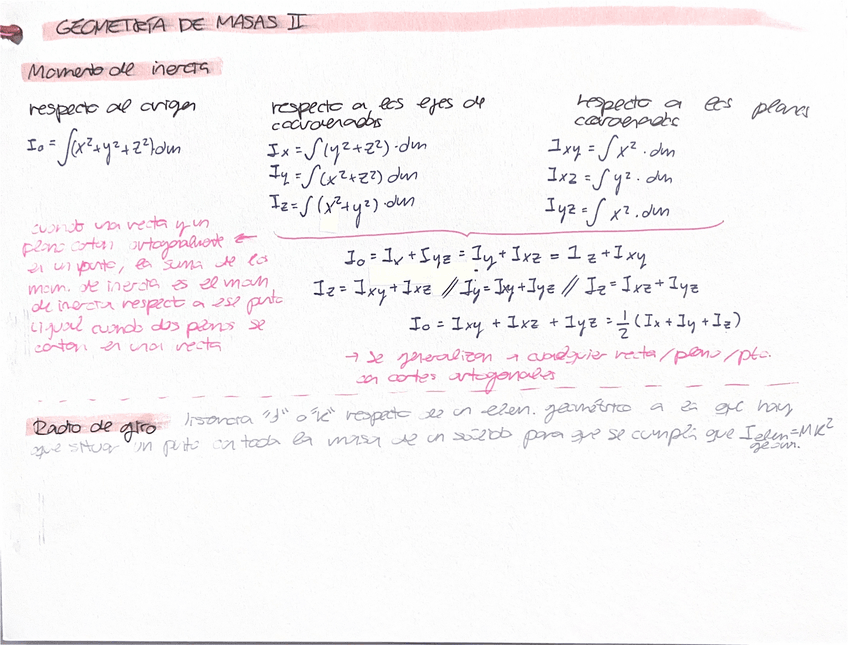 GEOMETRÍA DE MASAS II
Momento de inercia
respecto al origen
I₀ = ∫(x²+y²+z²)dm
respecto a los ejes de
coordenadas
Ix = ∫(y²+z²)·dm
Iy = ∫(x²+z²)dm
Iz = ∫(x²+y²)·dm
respecto a los planos
coordenados
Ixy = ∫x²·dm
Ixz = ∫y²·dm
Iyz = ∫x²·dm
cuando una recta y un
plano cortan ortogonalmente
en un punto, la suma de los
mom. de inercia es el mom
de inercia respecto a ese punto
igual cuando dos planos se
cortan en una recta
I₀ = Ix + Iyz = Iy + Ixz = Iz + Ixy
Iz = Ixy + Ixz // Iy = Ixy + Iyz // Iz = Ixz + Iyz
I₀ = Ixy + Ixz + Iyz = 1/2 (Ix + Iy + Iz)
→ Se generalizan a cualquier recta/plano/pto.
en cortes ortogonales
Radio de giro distancia "j" o "k" respecto de un elem. geométrico a la que hay
que situar un punto con toda la masa de un sólido para que se cumpla que I elem = MK²
geom.